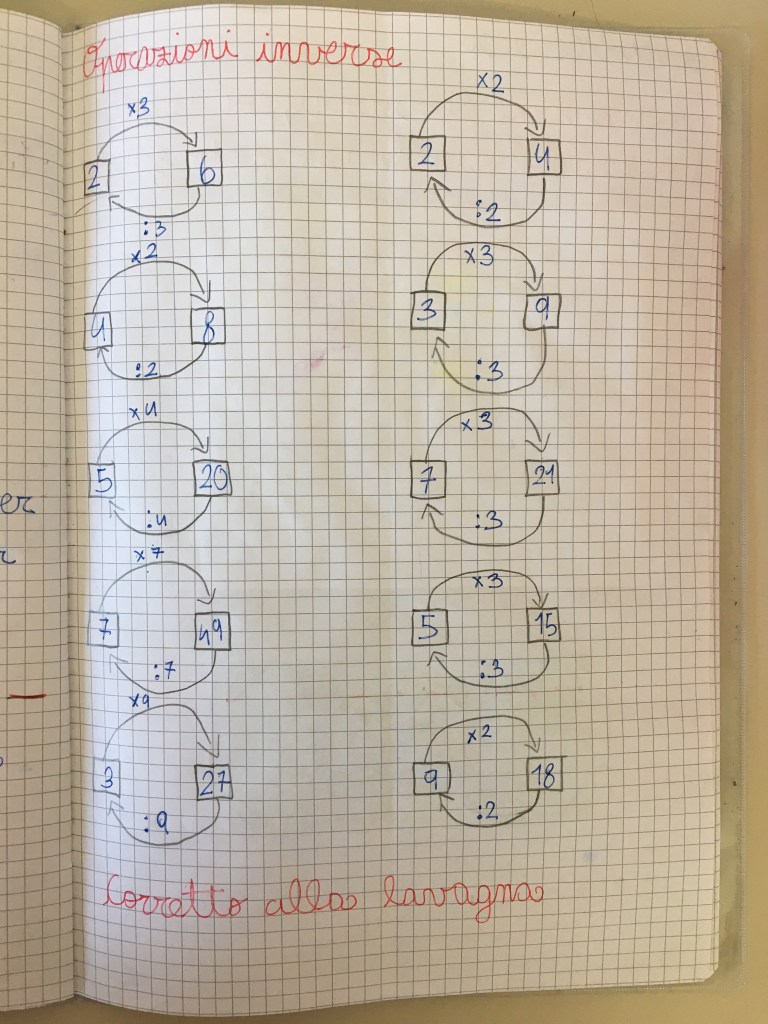 Operazioni inverse
x3
2 6
:3
x2
2 4
:2
x2
4 8
:2
x3
3 9
:3
x4
5 20
:4
x3
7 21
:3
x7
7 49
:7
x3
5 15
:3
x9
3 27
:9
x2
9 18
:2
Corretto alla lavagna
er